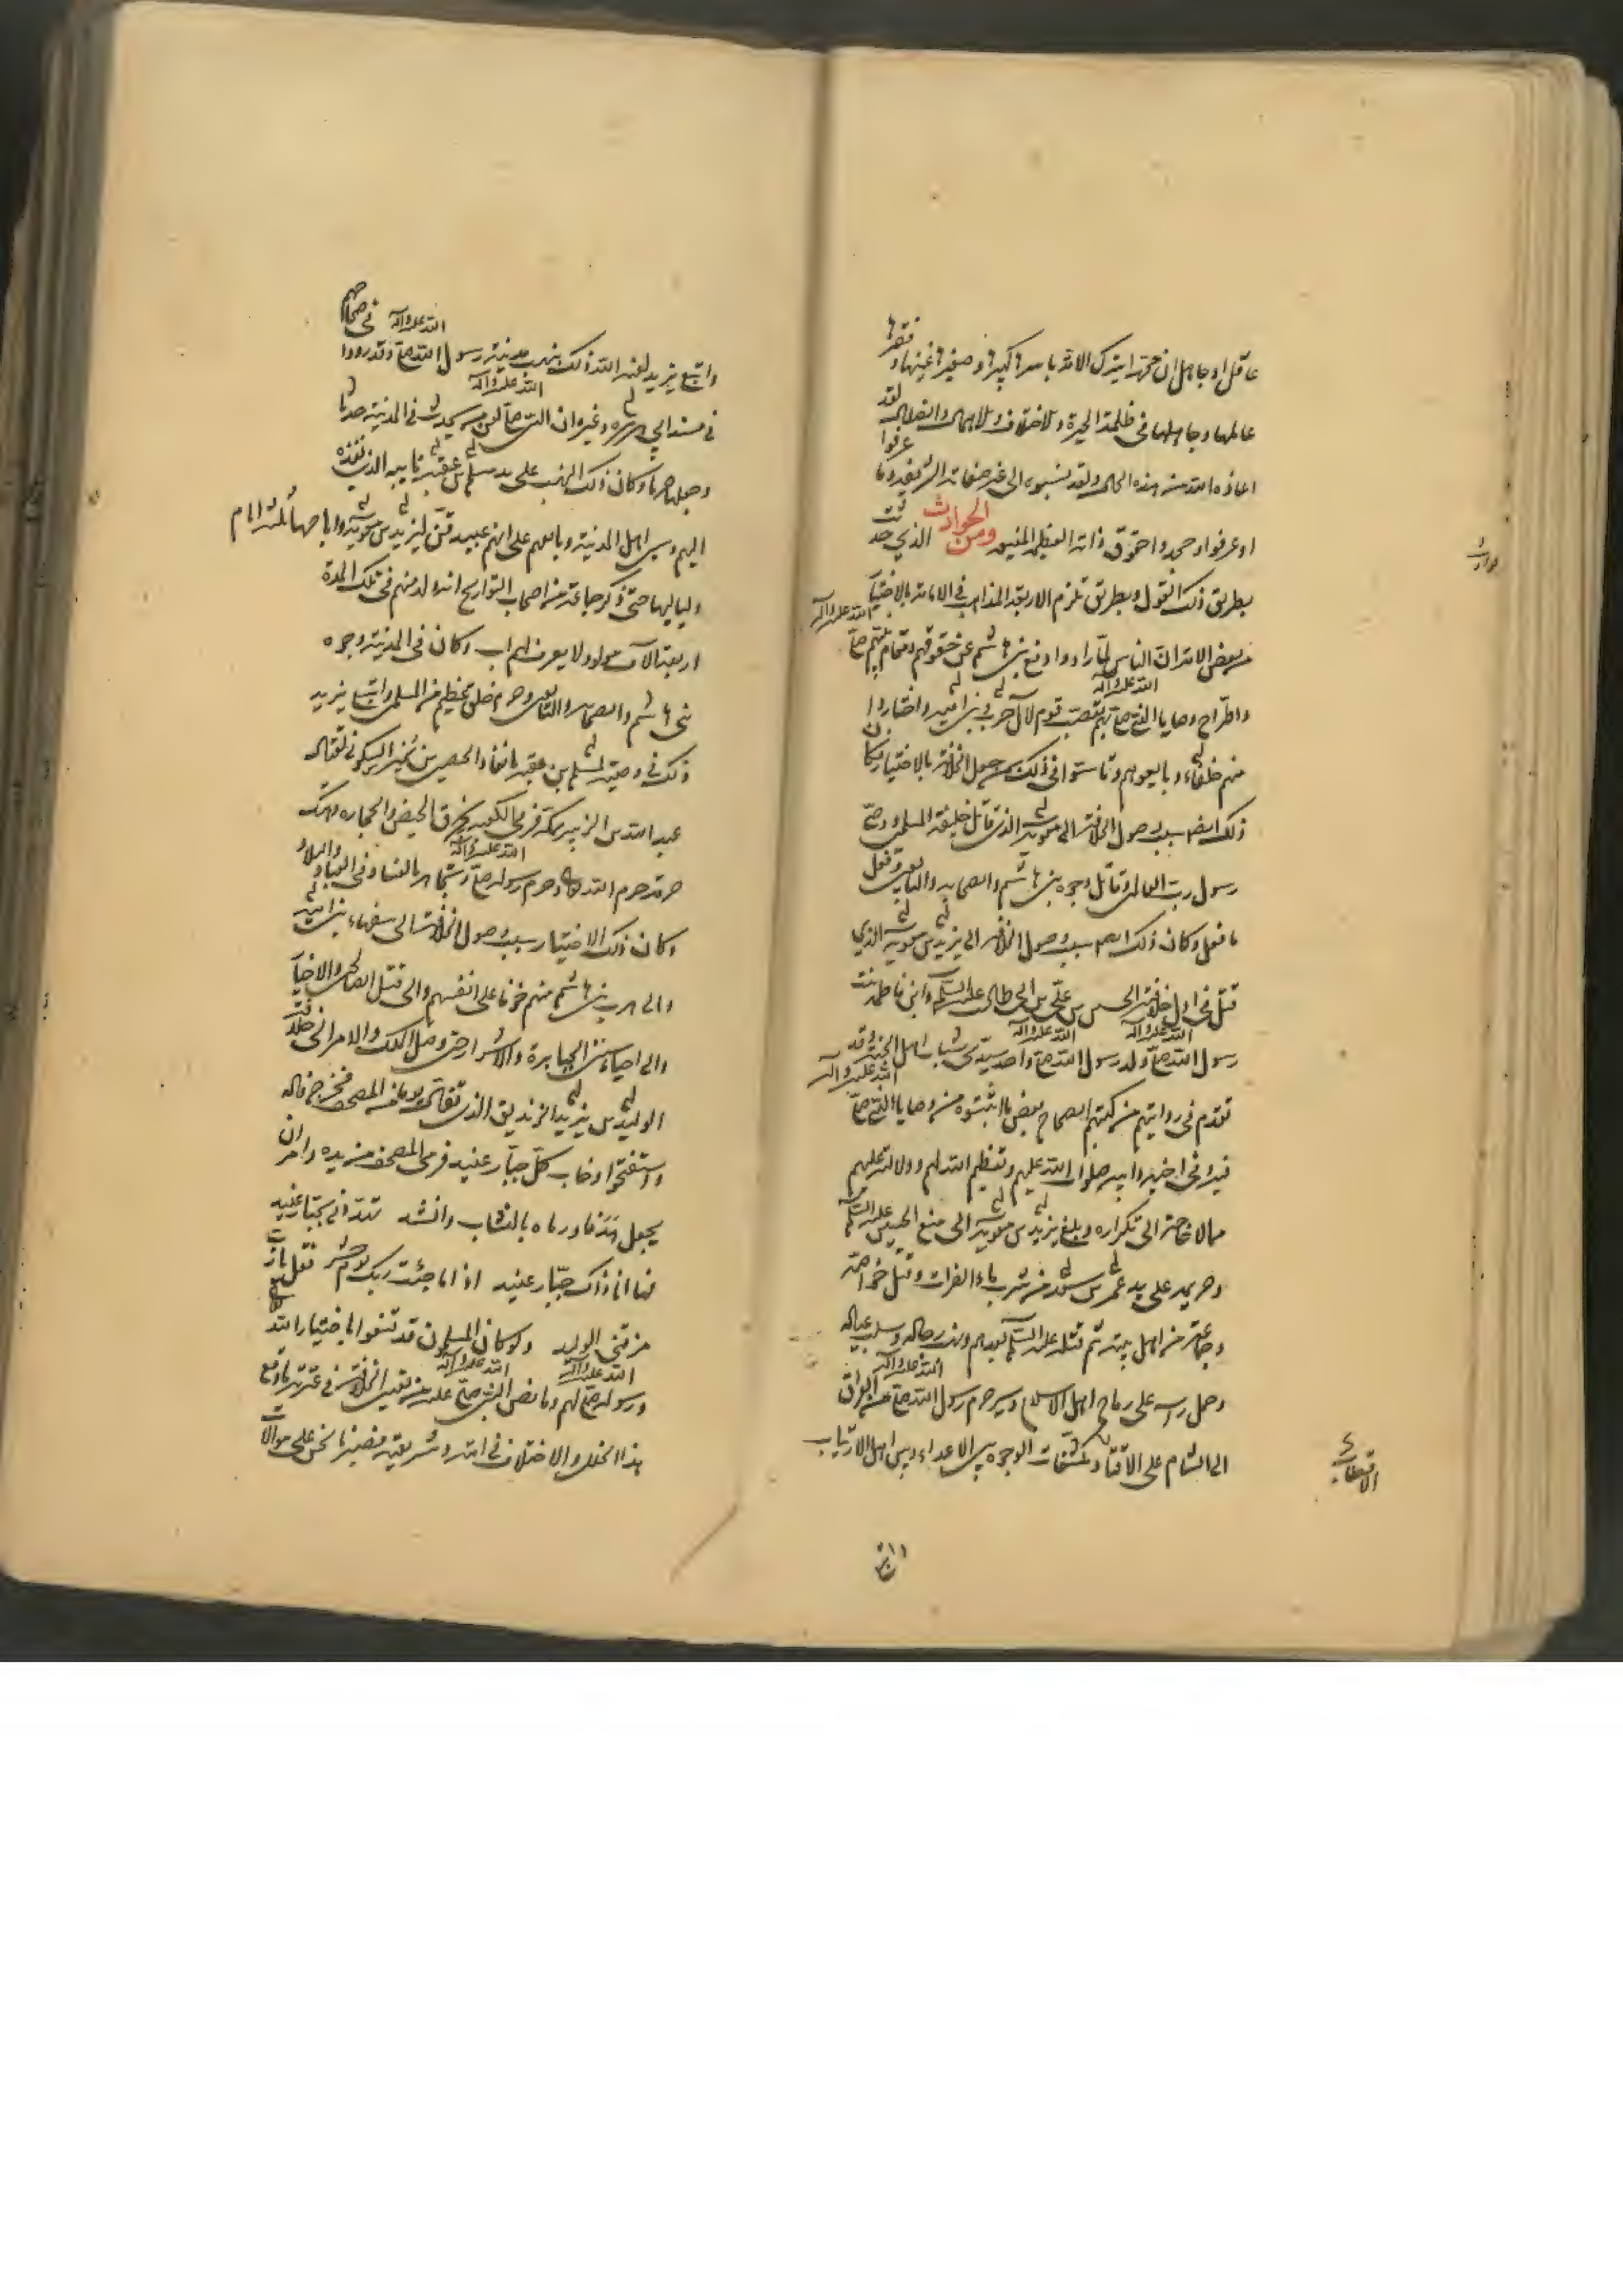 عاقل او جاهل ان محمدا يترك الامة باسرها كبيرها وصغيرها غنيها وفقيرها
عالمها وجاهلها فى ظلمة الحيرة والاختلاف والاهمال والضلال لقد
اعاذه الله من هذه الحال ولقد نسبوه الى غير صفاته الشريفة وما عرفوا
او عرفوا وجحدوا حقوق ذاته العظيم المنيف ومن الحوادث الذي حدثت
بطريق ذلك القول وبطريق تلزم الاربعة المذاهب فى الامامة بالاختيار
من بعض الامة ان الناس لما رادوا دفع بنى هاشم عن حقوقهم ومقام نبيهم صلى الله عليه وآله
واطراح وصايا النبى صلى الله عليه وآله بهم تعصب قوم لآل حرب وبنى امية واختاروا
منهم خلفاء وبايعوهم وتاسوا فى ذلك من جعل الخلافة بالاختيار فكان
ذلك ايضا سبب وصول الخلافة الى معوية الذى قاتل خليفة المسلمين ووصى
رسول رب العالمين وقاتل وجوه بنى هاشم والصحابة والتابعين وفعل
ما فعل وكان ذلك ايضا سبب وصول الخلافة الى يزيد بن معوية الذي
قتل فى اول خلافته الحسين بن على بن ابى طالب عليه السلم وابن فاطمة بنت
رسول الله صلى الله عليه وآله ولد رسول الله صلى الله عليه وآله واحد سيدى شباب اهل الجنة وقد
تقدم فى روايتهم من كتبهم الصحاح بعض ما اثبتوه من وصايا النبى صلى الله عليه وآله
فيه وفى اخيه وابيه صلوات الله عليهم وتعظيم الله لهم ودلالته عليهم
مما لا حاجة الى تكراره وبلغ يزيد بن معوية الى منع الحسين عليه السلم
وحريمه على يد عمر بن سعد من شرب ماء الفرات وقتل خواصه
وجماعة من اهل بيته ثم قتله عليه السلم بعدهم ونهب رحاله وسلب عياله
وحمل راسه على رماح اهل الاسلام وسير حرم رسول الله صلى الله عليه وآله من العراق
الى الشام على الاقتاب مكشفات الوجوه بين الاعداء وبين اهل الارتياب
الاقتطاب
واتبع يزيد لعنه الله ذلك بنهب مدينة رسول الله صلى الله عليه وآله وقد رووا فى صحاحهم
فى مسند ابى هريرة وغيره ان النبى صلى الله عليه وآله لعن من يحدث فى المدينة حدثا
وجعلها حرما وكان ذلك النهب على يد مسلم بن عقبة نايبه الذى نفذه
اليهم وسبى اهل المدينة وبايعهم على انهم عبيد قن ليزيد بن معوية واباحها ثلثة ايام
ولياليها حتى ذكر جماعة من اصحاب التواريخ انه ولد منهم فى تلك المدة
اربعة الآف مولود لا يعرف لهم اب وكان فى المدينة وجوه
بنى هاشم والصحابة والتابعين وحرم خلق عظيم من المسلمين واتبع يزيد
ذلك فى وصيته لمسلم بن عقبة بانفاذ الحصين بن نمير السكونى لقتال
عبد الله بن الزبير بمكة فرمى الكعبة بخرق الحيض والحجارة وهتك
حرمة حرم الله وحرم رسوله صلى الله عليه وآله وتجاهر بالفساد فى العباد والبلاد
وكان ذلك الاختيار سبب وصول الخلافة الى سفهاء بنى امية
والى هرب بنى هاشم منهم خوفا على انفسهم والى قتل الصالحين والاخيار
والى احياء سنن الجبابرة والاشرار حتى وصل الملك والامر الى خلافة
الوليد بن يزيد الزنديق الذى تفأل يوما من المصحف فخرج فاله
واستفتحوا وخاب كل جبار عنيد فرمى المصحف من يده وامر ان
يجعل هدفا ورماه بالنشاب وانشد تهددنى بجبار عنيد
فها انا ذاك جبار عنيد اذا ما جئت ربك يوم حشر فقل يا رب
مزقنى الوليد ولو كان المسلمون قد قنعوا باختيار الله
ورسوله صلى الله عليه وآله لهم وما نص النبى صلى الله عليه وآله عليه من تعيين الخلافة فى عترته ما وقع
هذا الخلل والاختلاف فى امته وشريعته